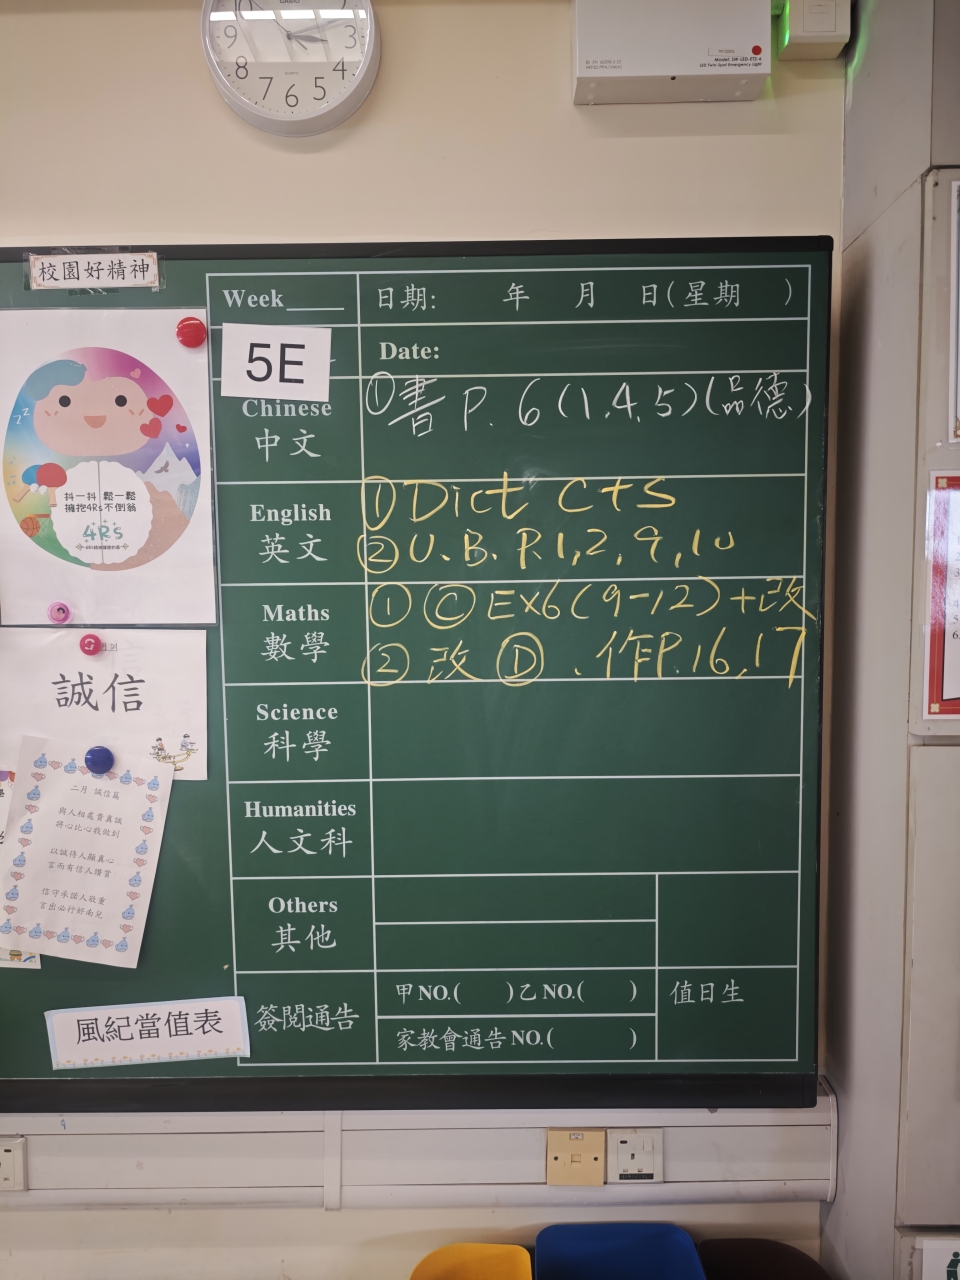 9 3
8 4
7 6 5
校園好精神
Week____ 日期: 年 月 日(星期 )
5E
Date:
Chinese
中文
①書 P. 6 (1,4,5) (品德)
English
英文
① Dict C+S
② U.B. P.1,2,9,10
Maths
數學
① Ⓒ Ex6(9-12)+改
② 改 Ⓓ .作P.16,17
Science
科學
Humanities
人文科
Others
其他
簽閱通告
甲NO.( )乙NO.( )
家教會通告NO.( )
值日生
抖一抖 鬆一鬆
擁抱4Rs不倒翁
4Rs
誠信
二月 誠信篇
與人相處貴真誠
將心比心我做到
以誠待人顯真心
言而有信人讚賞
信守承諾人敬重
言出必行好南兒
風紀當值表